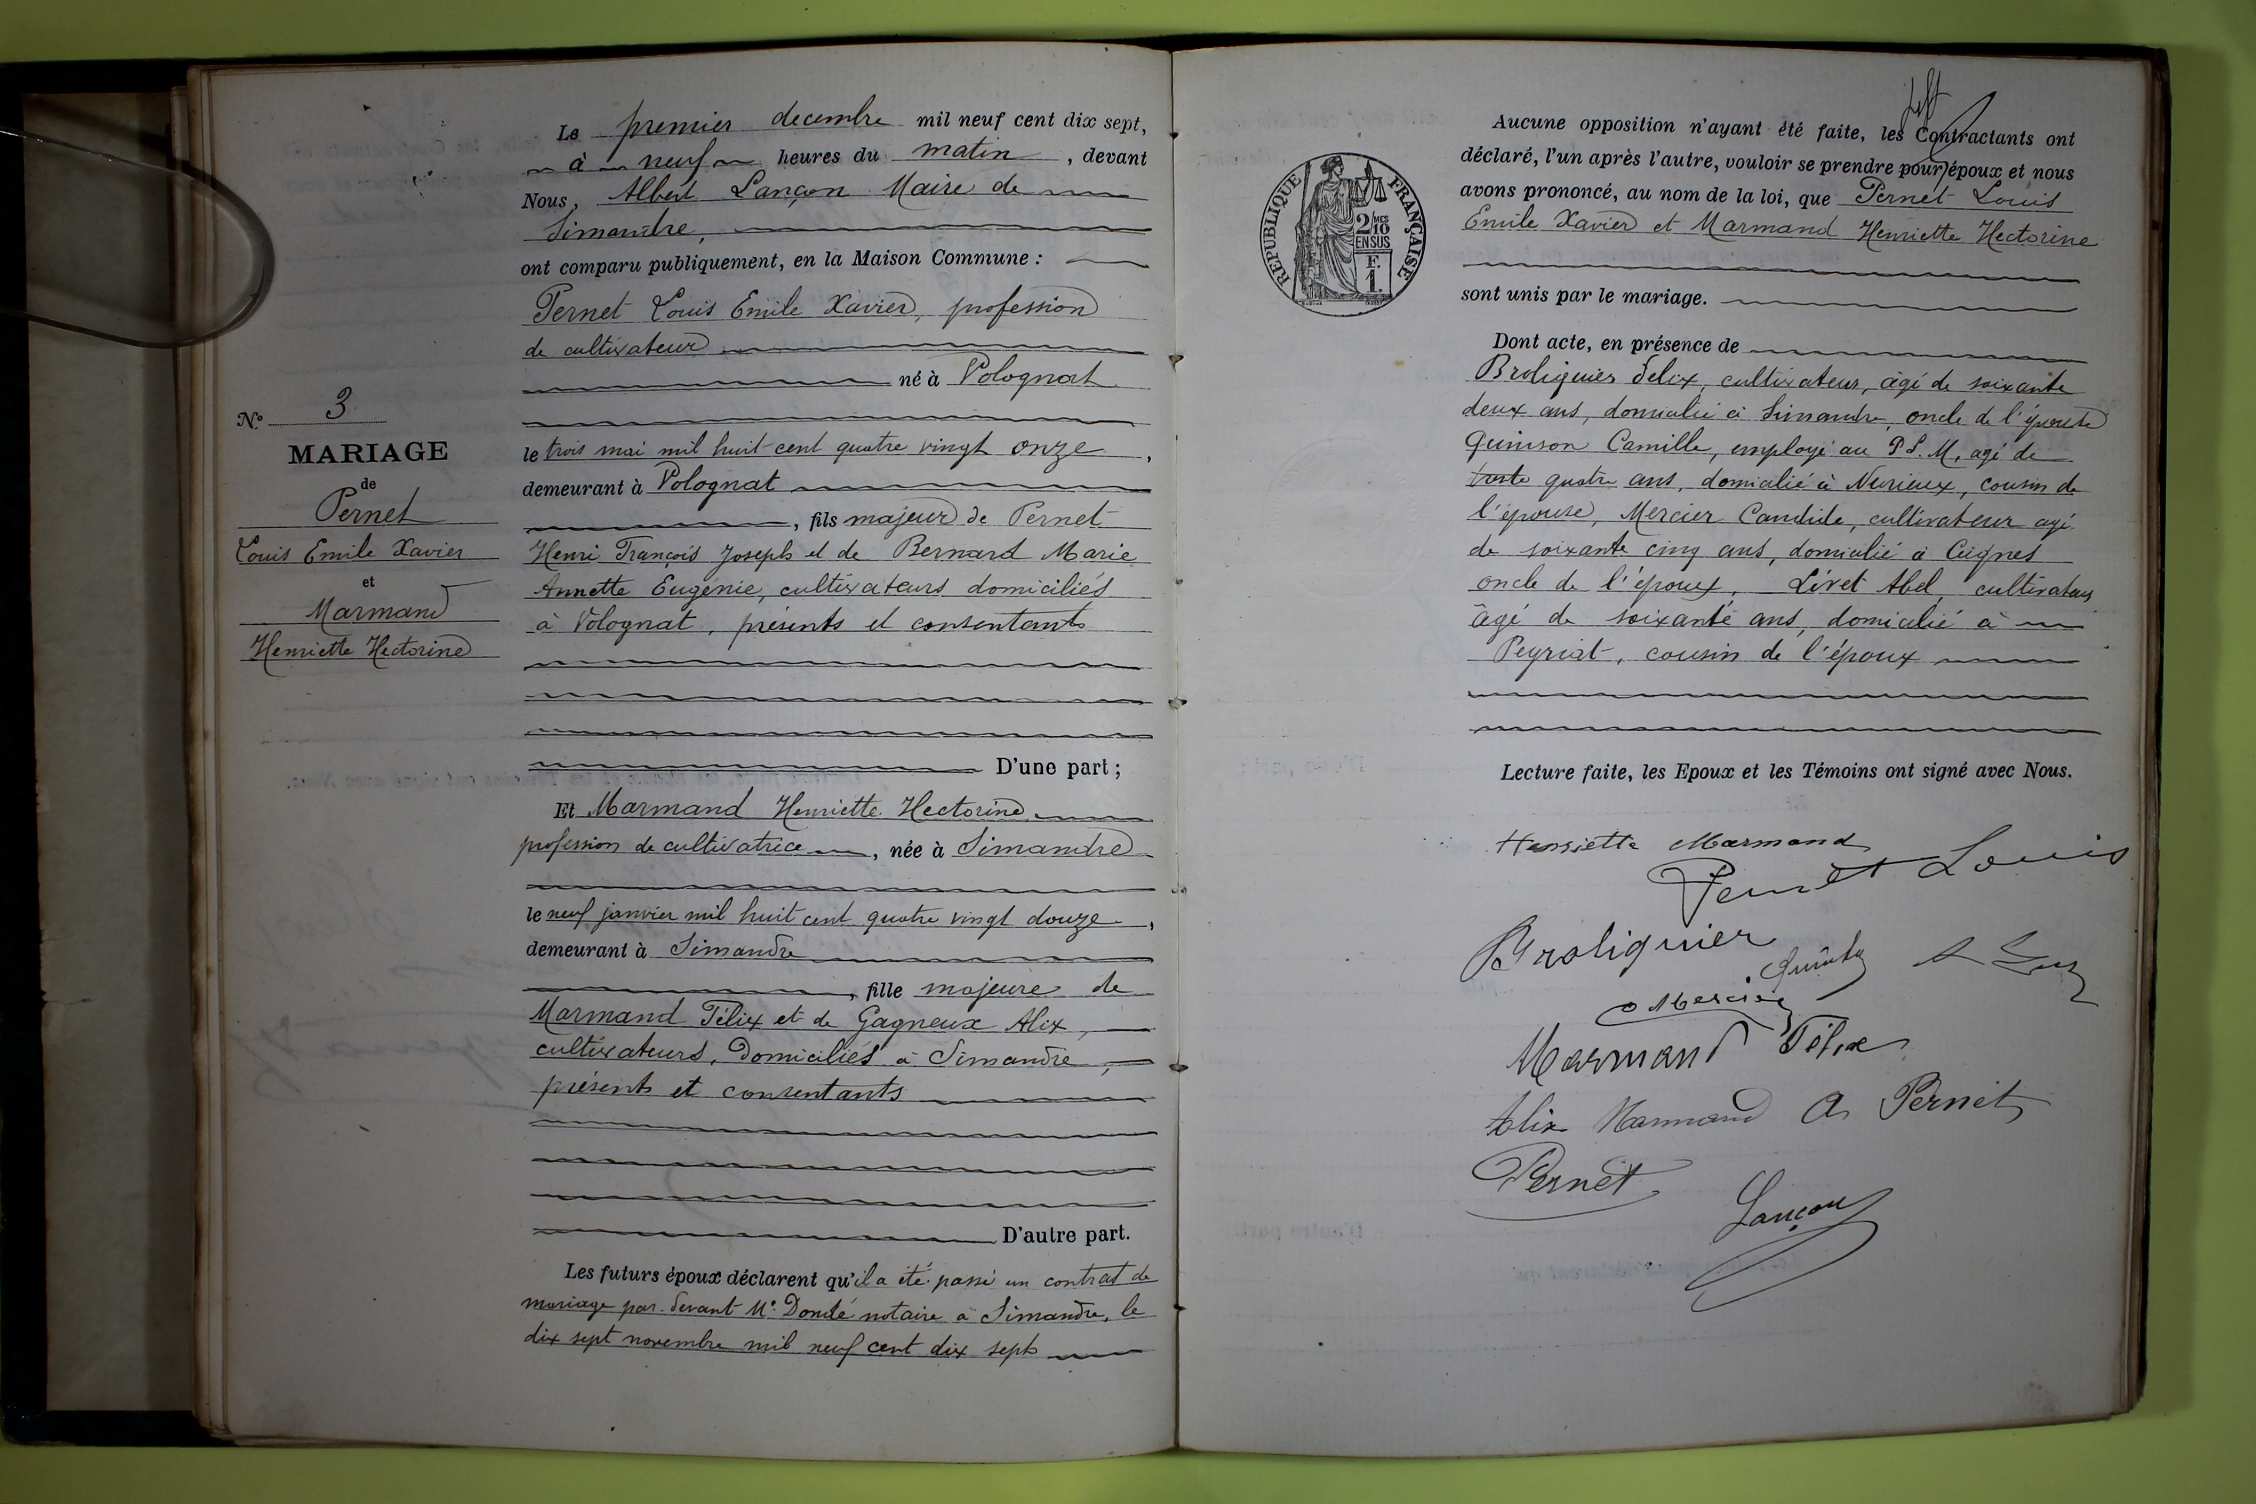 Le premier decembre mil neuf cent dix sept,
à neuf heures du matin, devant
Nous, Albert Lançon Maire de
Simandre,
ont comparu publiquement, en la Maison Commune :
Pernet Louis Emile Xavier, profession
de cultivateur
né à Volognat
le trois mai mil huit cent quatre vingt onze,
demeurant à Volognat
, fils majeur de Pernet
Henri François Joseph et de Bernard Marie
Annette Eugénie, cultivateurs domiciliés
à Volognat, présents et consentants
D'une part ;
N° 3
MARIAGE
de
Pernet
Louis Emile Xavier
et
Marmand
Henriette Hectorine
Et Marmand Henriette Hectorine
profession de cultivatrice, née à Simandre
le neuf janvier mil huit cent quatre vingt douze,
demeurant à Simandre
, fille majeure de
Marmand Félix et de Gagneux Alix,
cultivateurs, domiciliés à Simandre,
présents et consentants
D'autre part.
Les futurs époux déclarent qu'il a été passé un contrat de
mariage par devant Me Dondé notaire à Simandre, le
dix sept novembre mil neuf cent dix sept
REPUBLIQUE FRANÇAISE
2/10 MES
EN SUS
F.
1.
Aucune opposition n'ayant été faite, les Contractants ont
déclaré, l'un après l'autre, vouloir se prendre pour époux et nous
avons prononcé, au nom de la loi, que Pernet Louis
Emile Xavier et Marmand Henriette Hectorine
sont unis par le mariage.
Dont acte, en présence de
Broliquier Félix, cultivateur, âgé de soixante
deux ans, domicilié à Simandre, oncle de l'épouse
Quinson Camille, employé au P.L.M, agé de
trente quatre ans, domicilié à Nurieux, cousin de
l'épouse, Mercier Candide, cultivateur agé
de soixante cinq ans, domicilié à Ceignes
oncle de l'époux, Livet Abel, cultivateur
âgé de soixante ans, domicilié à
Peyriat, cousin de l'époux
Lecture faite, les Epoux et les Témoins ont signé avec Nous.
Henriette Marmand
Pernet Louis
Broliquier
Mercier
Marmand Félix
Alix Marmand A Pernet
Pernet
Lançon